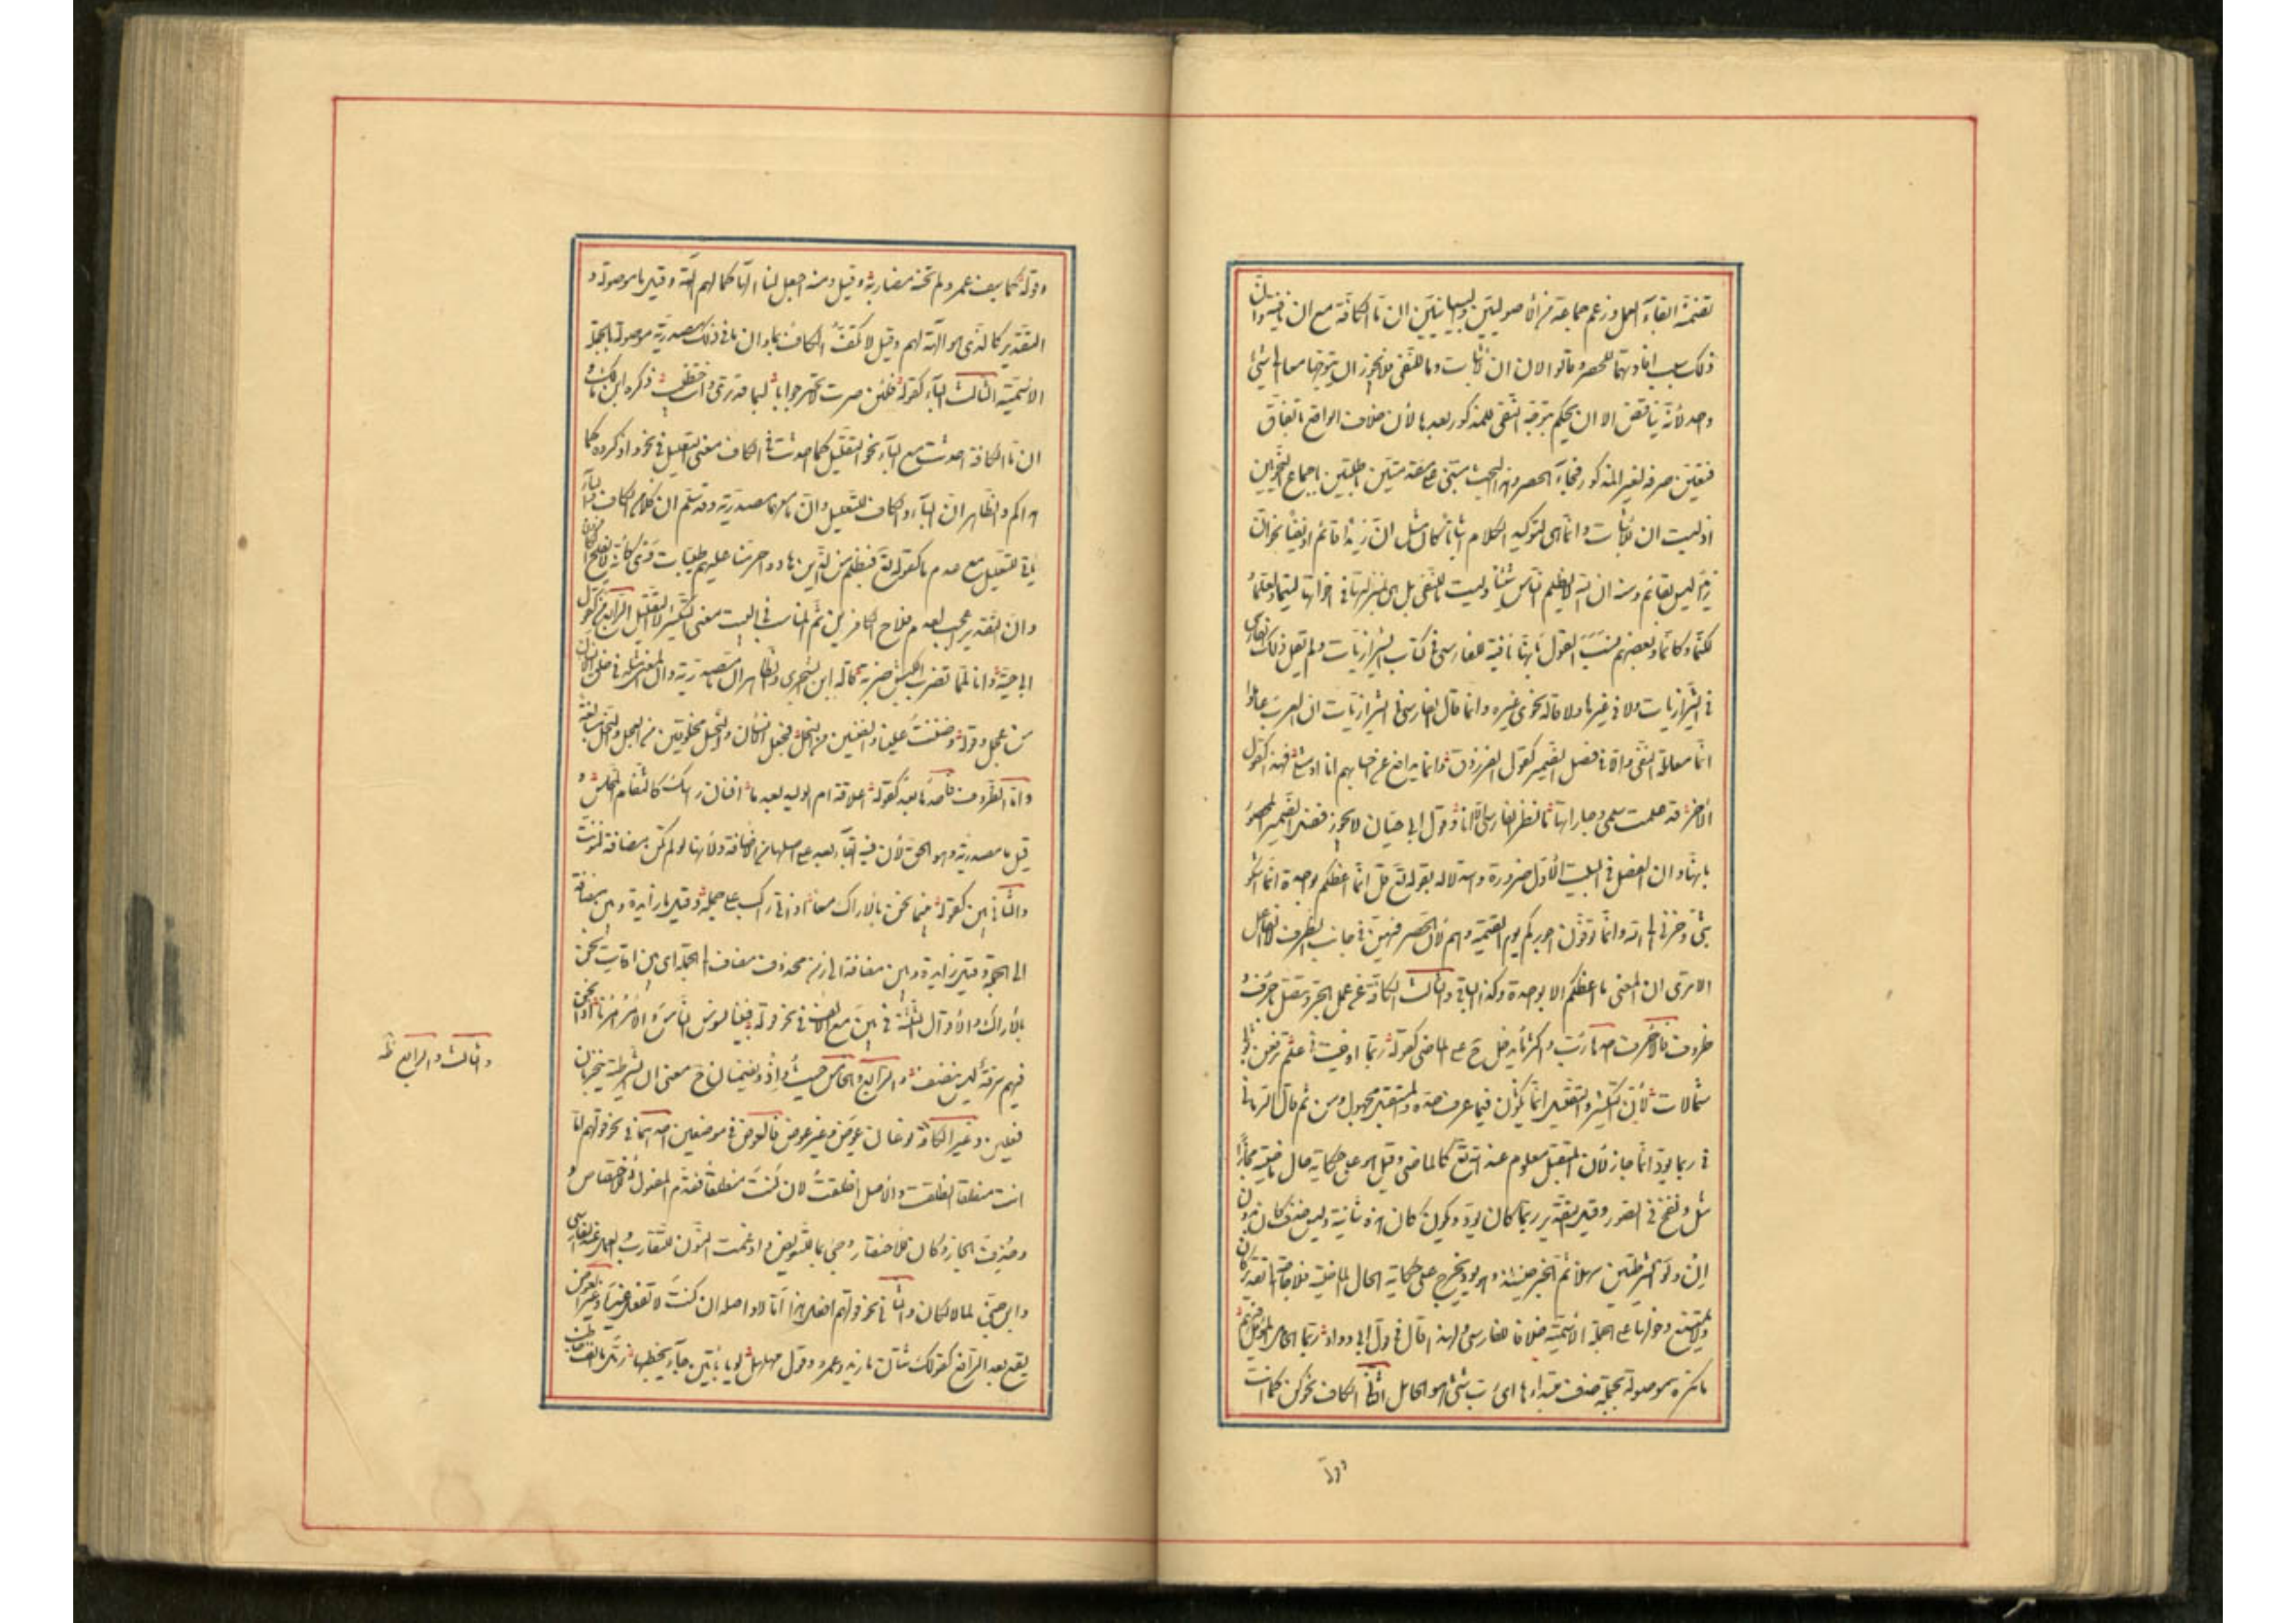 تضمنة ابقاء العمل وزعم جماعة من الأصوليين والبيانيين ان ما الكافة مع ان نافية وان
ذلك سبب افادتها للحصر وقالوا لان ان للإثبات وما للنفي فلا يجوز ان يتوجها معا الى شئ
واحد لأنه تناقض الا ان يحكم بتوجه النفي للمذكور بعدها لأن خلاف الواقع باتفاق
فتعين صرفه لغير المذكور فجاء الحصر وهذا البحث مبتنى على مقدمتين باطلتين باجماع النحويين
اذ ليست ان للإثبات وانما هي لتوكيد الكلام اثباتا كان مثل ان زيدا قائم او نفيا نحو ان
زيدا ليس بقائم ومنه ان الله لا يظلم الناس شيئا وليست ما للنفي بل هي بمنزلتها في اخواتها ليتما ولعلما
لكنما وكأنما وبعضهم ينسب القول بانها نافية للفارسي في كتاب الشيرازيات ولم يقل ذلك الفارسي
في الشيرازيات ولا في غيرها ولا قاله نحوي غيره وانما قال الفارسي في الشيرازيات ان العرب عاملوا
انما معاملة النفي والا في فصل الضمير كقول الفرزدق وانما يدافع عن احسابهم انا او مثلي فهذا كقول
الآخر قد علمت سلمى وجاراتها ما قطر الفارس الا انا وقول ابي حيان لا يجوز فصل الضمير المحصور
بانما وان الفصل في البيت الأول ضرورة واستدلاله بقوله تع قل انما اعظكم بواحدة انما اشكو
بثي وحزني الى الله وانما توفون اجوركم يوم القيمة وهم لان الحصر فيهن في جانب الظرف لا الفاعل
الا ترى ان المعنى ما اعظكم الا بواحدة وكذا الباقي والثالث الكافة عن عمل الجر وتتصل باحرف و
ظروف فالأحرف احدها رب واكثر ما يدخل ح على الماضي كقوله ربما اوفيت في علم ترفعن ثوبي
شمالات لأن التكثير والتقليل انما يكون فيما عرف حده والمستقبل مجهول ومن ثم قال الرماني
في ربما يود انما جاز لأن المستقبل معلوم عند الله تع كالماضي وقيل هو على حكاية حال ماضية مجازا
مثل ونفخ في الصور وقيل التقدير ربما كان يود ويكون كان هذه شانية وليس حذف كان بدون
ان ولو الشرطيتين سهلا ثم الخبر حينئذ وهو يود يخرج على حكاية الحال الماضية فلا حاجة الى تقدير كان
ولا يمتنع دخولها على الجملة الاسمية خلافا للفارسي ولهذا قال في قول ابي دواد ربما الجامل المؤبل فيهم
ما نكرة موصوفة بجملة حذف مبتداءها اى رب شئ هو الجامل الثاني الكاف نحو كن كما انت
وقوله
وقوله كما سيف عمرو لم تخنه مضاربه وقيل ومنه اجعل لنا الها كما لهم آلهة وقيل ما موصولة و
التقدير كالذي هو آلهة لهم وقيل لا تكف الكاف بما وان ما في ذلك مصدرية موصولة بالجملة
الاسمية الثالث الباء كقوله فلئن صرت لا تحير جوابا لبما قد ترى وانت خطيب ذكره ابن مالك و
ان ما الكافة احدثت مع الباء نحو التقليل كما احدثت في الكاف معنى التعليل في نحو واذكروه كما
هداكم والظاهر ان الباء والكاف للتعليل وان ما معهما مصدرية وقد سلم ان كلا من الكاف والباء
يأتي للتعليل مع عدم ما كقوله تع فبظلم من الذين هادوا حرمنا عليهم طيبات وي كأنه لا يفلح الكافرون
وان التقدير اعجب لعدم فلاح الكافرين ثم المناسب في البيت معنى التكثير لا التقليل الرابع من كقول
ابي حية وانا لمما نضرب الكبش ضربة قاله ابن الشجري والظاهر ان ما مصدرية وان المعنى مثله في خلق الانسان
من عجل وقوله وضنت علينا والضنين من البخل فجعل الانسان والبخيل مخلوقين من العجل والبخل مبالغة
واما الظروف فاحدها بعد كقوله اعلاقة ام الوليد بعد ما افنان رأسك كالثغام المخلس و
قيل ما مصدرية وهو الحق لأن فيه ابقاء بعد على اصلها من الاضافة ولأنها لو لم تكن مضافة لنونت
والثاني بين كقوله بينما نحن بالأراك معا اذ اتى راكب على جمله وقيل ما زائدة وبين مضافة
الى الجملة وقيل زايدة وبين مضافة الى زمن محذوف مضاف الى الجملة اي بين اوقات نحن
بالأراك والاقوال الثلثة في بين مع الالف في نحو قوله فبينا نسوس الناس والامر امرنا اذا نحن
فيهم سوقة ليس ننصف والرابع والخامس حيث واذ ويضمنان ح معنى ان الشرطية فيجزمان
فعلين وغير الكافة نوعان عوض وغير عوض فالعوض في موضعين احدهما في نحو قولهم اما
انت منطلقا انطلقت والأصل انطلقت لان كنت منطلقا فقدم المفعول له للاختصاص و
وحذف الجار وكان للاختصار وجئ بما للتعويض وادغمت النون للتقارب والعمل عند الفارسي
وابن جني لما لا لكان والثاني في نحو قولهم افعل هذا اما لا واصله ان كنت لا تفعل غيره وغير العوض
يقع بعد الرافع كقولك شتان ما زيد وعمرو وقول مهلهل لو بابانين جاء يخطبها زمل ما انف خاطب
والثالث والرابع ظ